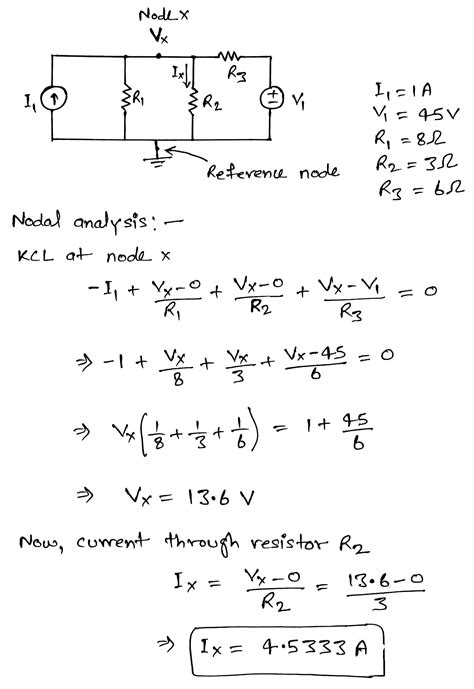 Node x
Vx
Ix
R3
I1
R1
R2
V1
Reference node
I1 = 1A
V1 = 45V
R1 = 8Ω
R2 = 3Ω
R3 = 6Ω
Nodal analysis: —
KCL at node x
-I1 + Vx-0/R1 + Vx-0/R2 + Vx-V1/R3 = 0
⇒ -1 + Vx/8 + Vx/3 + Vx-45/6 = 0
⇒ Vx(1/8 + 1/3 + 1/6) = 1 + 45/6
⇒ Vx = 13.6 V
Now, current through resistor R2
Ix = Vx-0/R2 = 13.6-0/3
⇒ Ix = 4.5333 A